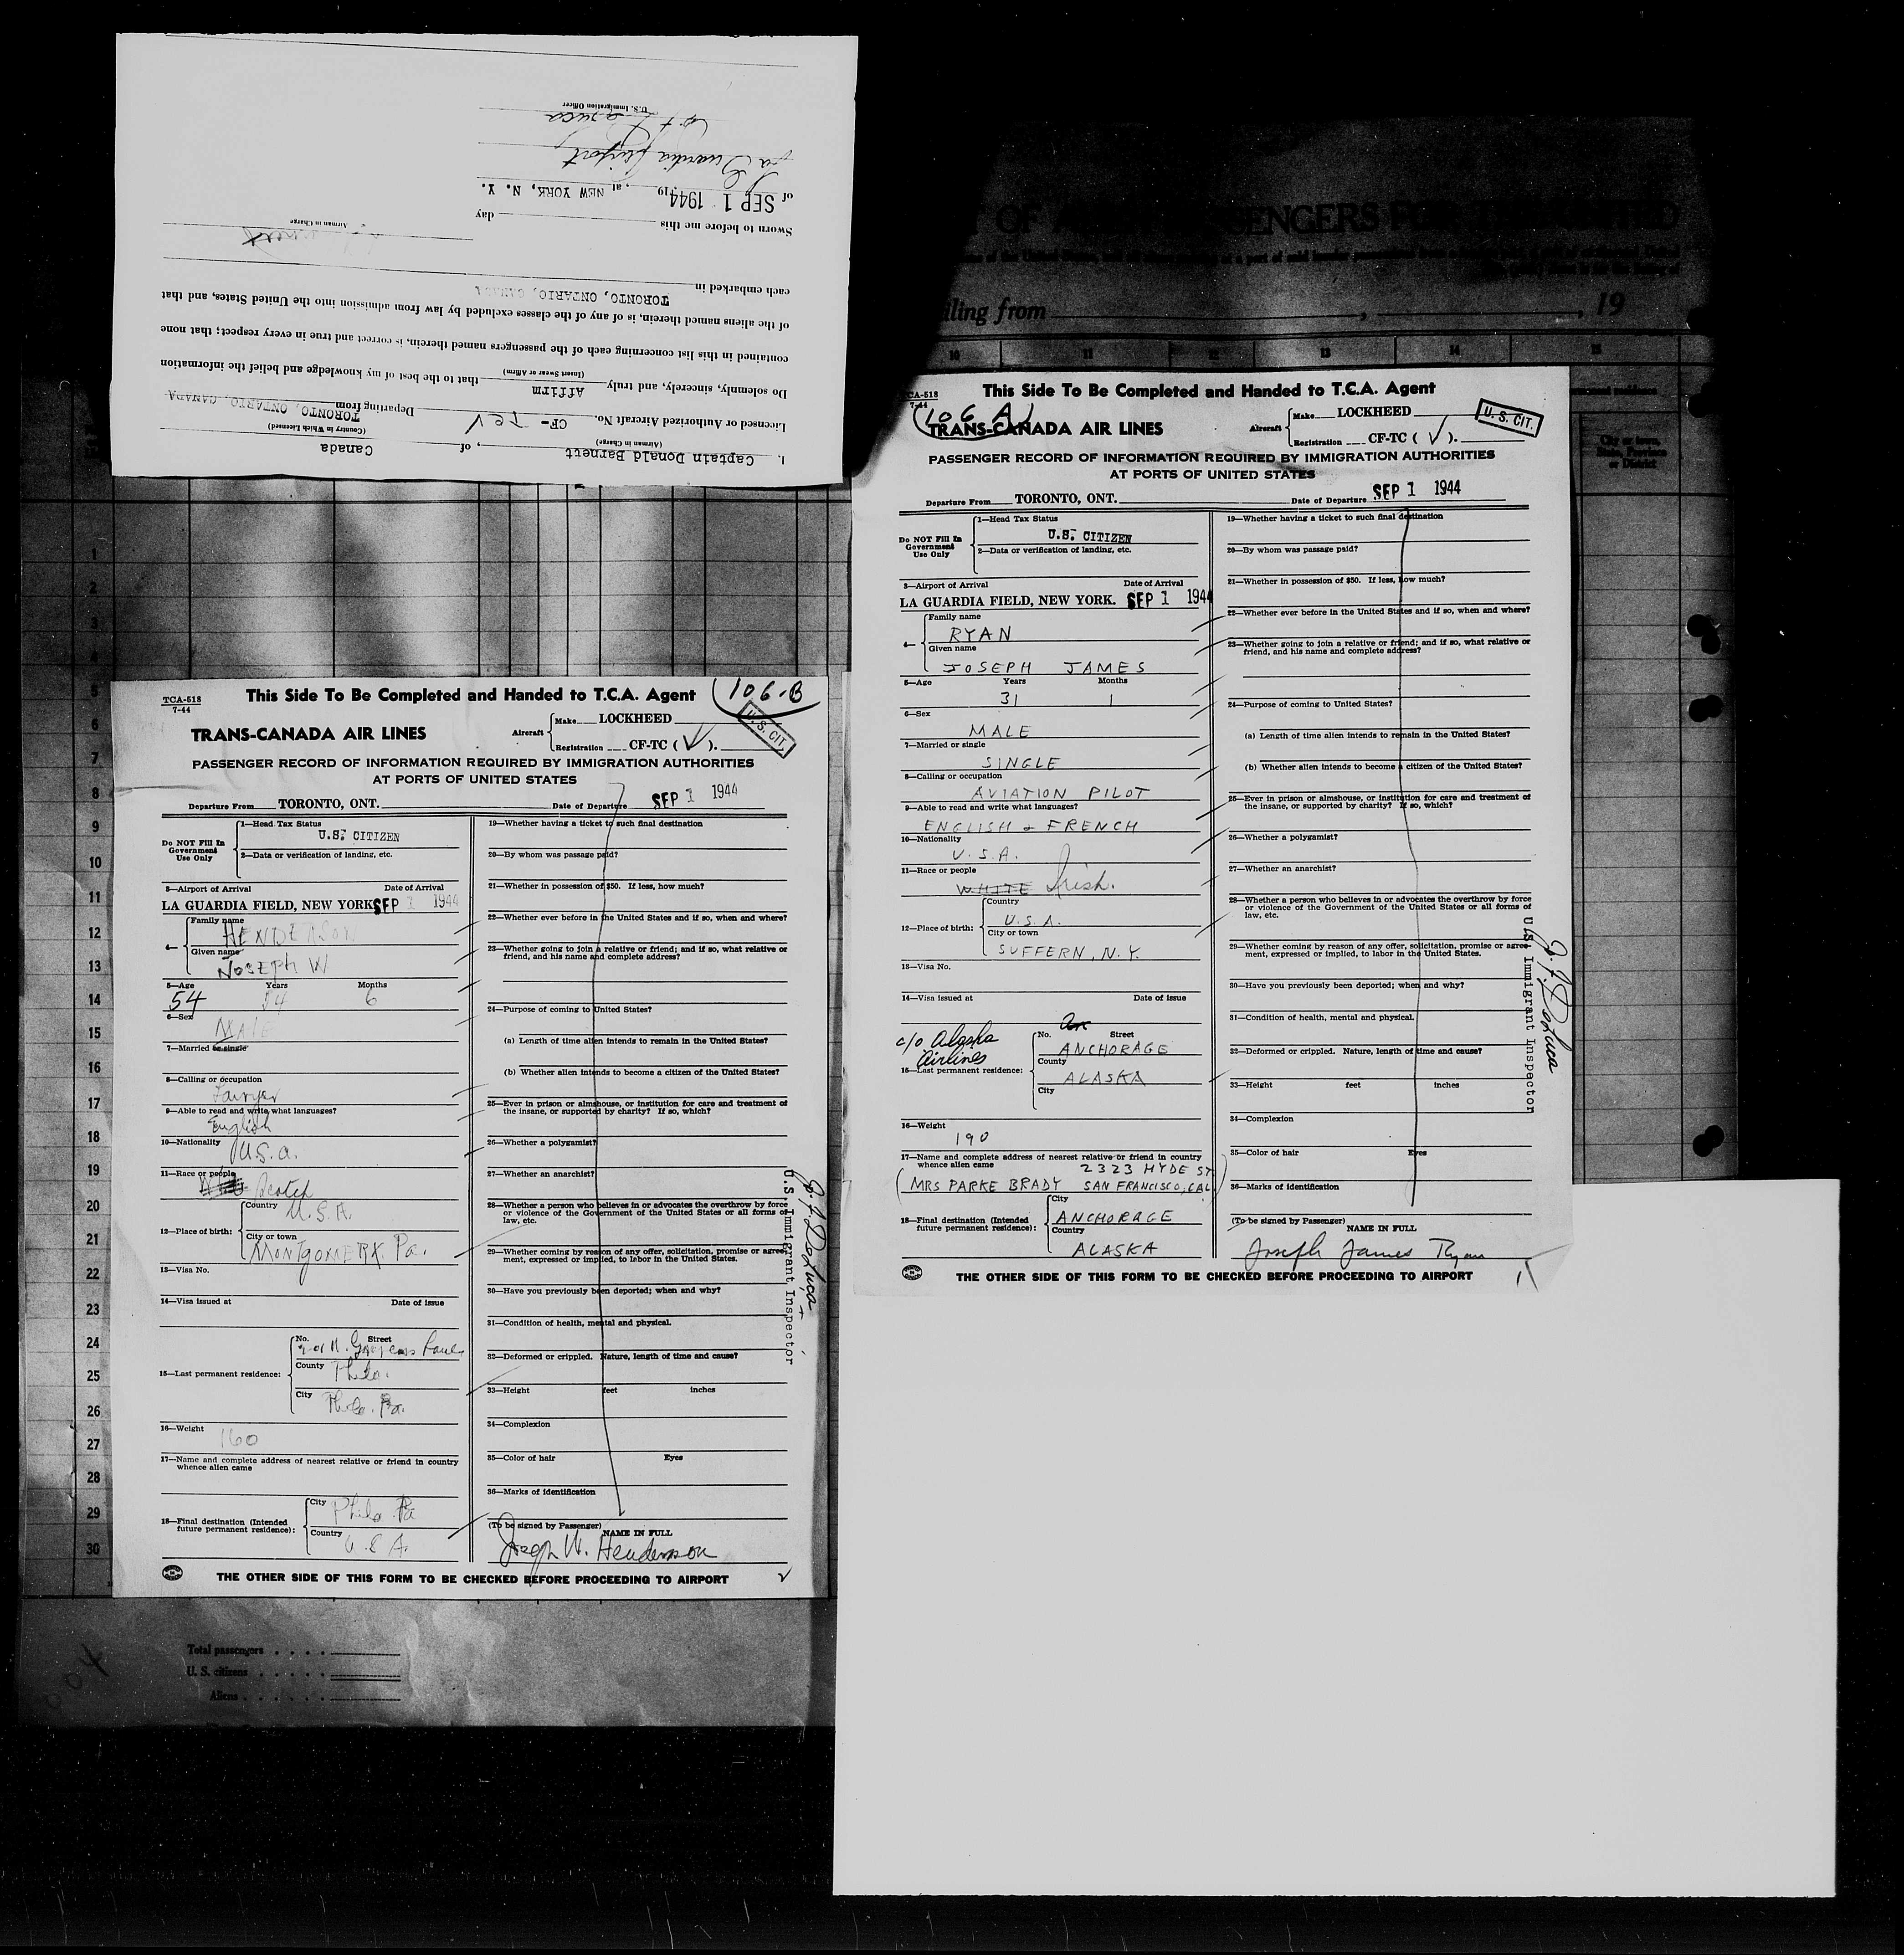 I, Captain Donald Barnett, of Canada
(Airman in Charge) (Country in Which Licensed)
Licensed or Authorized Aircraft No. CF- TCV Departing from TORONTO, ONTARIO, CANADA
Do solemnly, sincerely, and truly Affirm that to the best of my knowledge and belief the information
(Insert Swear or Affirm)
contained in this list concerning each of the passengers named therein, is correct and true in every respect; that none
of the aliens named therein, is of any of the classes excluded by law from admission into the United States, and that
each embarked in TORONTO, ONTARIO, CANADA
Airman in Charge
Sworn to before me this day
of SEP 1 1944, 19 , at NEW YORK, N. Y.
La Guardia Airport
U.S. Immigration Officer
OF PASSENGERS
iling from , , 19
10 11 12 13 14 15
City or town,
State, Province
or District
1
2
3
4
5
6
7
8
9
10
11
12
13
14
15
16
17
18
19
20
21
22
23
24
25
26
27
28
29
30
Total passengers
U. S. citizens
Aliens
TCA-518
7-44
This Side To Be Completed and Handed to T.C.A. Agent
106-B
U. S. CIT.
TRANS-CANADA AIR LINES
Aircraft
Make LOCKHEED
Registration CF-TC ( V ).
PASSENGER RECORD OF INFORMATION REQUIRED BY IMMIGRATION AUTHORITIES
AT PORTS OF UNITED STATES
Departure From TORONTO, ONT. Date of Departure SEP 1 1944
Do NOT Fill In
Government
Use Only
1—Head Tax Status
U.S. CITIZEN
2—Data or verification of landing, etc.
3—Airport of Arrival Date of Arrival
LA GUARDIA FIELD, NEW YORK. SEP 1 1944
4—
Family name
HENDERSON
Given name
JOSEPH W
5—Age Years Months
54 54 6
6—Sex
MALE
7—Married or single
8—Calling or occupation
Lawyer
9—Able to read and write what languages?
English
10—Nationality
U.S.A.
11—Race or people
Scotch
12—Place of birth:
Country
U.S.A.
City or town
MONTGOMERY, Pa.
13—Visa No.
14—Visa issued at Date of issue
15—Last permanent residence:
No. Street
County
Phila.
City
Phila. Pa.
16—Weight
160
17—Name and complete address of nearest relative or friend in country
whence alien came
18—Final destination (Intended
future permanent residence):
City
Phila Pa
Country
U.S.A.
19—Whether having a ticket to such final destination
20—By whom was passage paid?
21—Whether in possession of $50. If less, how much?
22—Whether ever before in the United States and if so, when and where?
23—Whether going to join a relative or friend; and if so, what relative or
friend, and his name and complete address?
24—Purpose of coming to United States?
(a) Length of time alien intends to remain in the United States?
(b) Whether alien intends to become a citizen of the United States?
25—Ever in prison or almshouse, or institution for care and treatment of
the insane, or supported by charity? If so, which?
26—Whether a polygamist?
27—Whether an anarchist?
28—Whether a person who believes in or advocates the overthrow by force
or violence of the Government of the United States or all forms of
law, etc.
29—Whether coming by reason of any offer, solicitation, promise or agree-
ment, expressed or implied, to labor in the United States.
30—Have you previously been deported; when and why?
31—Condition of health, mental and physical.
32—Deformed or crippled. Nature, length of time and cause?
33—Height feet inches
34—Complexion
35—Color of hair Eyes
36—Marks of identification
(To be signed by Passenger)
NAME IN FULL
Joseph W. Henderson
U.S. Immigrant Inspector
THE OTHER SIDE OF THIS FORM TO BE CHECKED BEFORE PROCEEDING TO AIRPORT
2
CA-518
7-44
This Side To Be Completed and Handed to T.C.A. Agent
(106 A)
U. S. CIT.
TRANS-CANADA AIR LINES
Aircraft
Make LOCKHEED
Registration CF-TC ( V ).
PASSENGER RECORD OF INFORMATION REQUIRED BY IMMIGRATION AUTHORITIES
AT PORTS OF UNITED STATES
Departure From TORONTO, ONT. Date of Departure SEP 1 1944
Do NOT Fill In
Government
Use Only
1—Head Tax Status
U.S. CITIZEN
2—Data or verification of landing, etc.
3—Airport of Arrival Date of Arrival
LA GUARDIA FIELD, NEW YORK. SEP 1 1944
4—
Family name
RYAN
Given name
JOSEPH JAMES
5—Age Years Months
31 1
6—Sex
MALE
7—Married or single
SINGLE
8—Calling or occupation
AVIATION PILOT
9—Able to read and write what languages?
ENGLISH & FRENCH
10—Nationality
U.S.A.
11—Race or people
WHITE Irish.
12—Place of birth:
Country
U.S.A.
City or town
SUFFERN, N.Y.
13—Visa No.
14—Visa issued at Date of issue
c/o Alaska
Airlines
15—Last permanent residence:
No. Street
ANCHORAGE
County
ALASKA
City
16—Weight
190
17—Name and complete address of nearest relative or friend in country
whence alien came 2323 HYDE ST
(MRS PARKE BRADY SAN FRANCISCO, CAL.)
18—Final destination (Intended
future permanent residence):
City
ANCHORAGE
Country
ALASKA
19—Whether having a ticket to such final destination
20—By whom was passage paid?
21—Whether in possession of $50. If less, how much?
22—Whether ever before in the United States and if so, when and where?
23—Whether going to join a relative or friend; and if so, what relative or
friend, and his name and complete address?
24—Purpose of coming to United States?
(a) Length of time alien intends to remain in the United States?
(b) Whether alien intends to become a citizen of the United States?
25—Ever in prison or almshouse, or institution for care and treatment of
the insane, or supported by charity? If so, which?
26—Whether a polygamist?
27—Whether an anarchist?
28—Whether a person who believes in or advocates the overthrow by force
or violence of the Government of the United States or all forms of
law, etc.
29—Whether coming by reason of any offer, solicitation, promise or agree-
ment, expressed or implied, to labor in the United States.
30—Have you previously been deported; when and why?
31—Condition of health, mental and physical.
32—Deformed or crippled. Nature, length of time and cause?
33—Height feet inches
34—Complexion
35—Color of hair Eyes
36—Marks of identification
(To be signed by Passenger)
NAME IN FULL
Joseph James Ryan
U.S. Immigrant Inspector
THE OTHER SIDE OF THIS FORM TO BE CHECKED BEFORE PROCEEDING TO AIRPORT
1